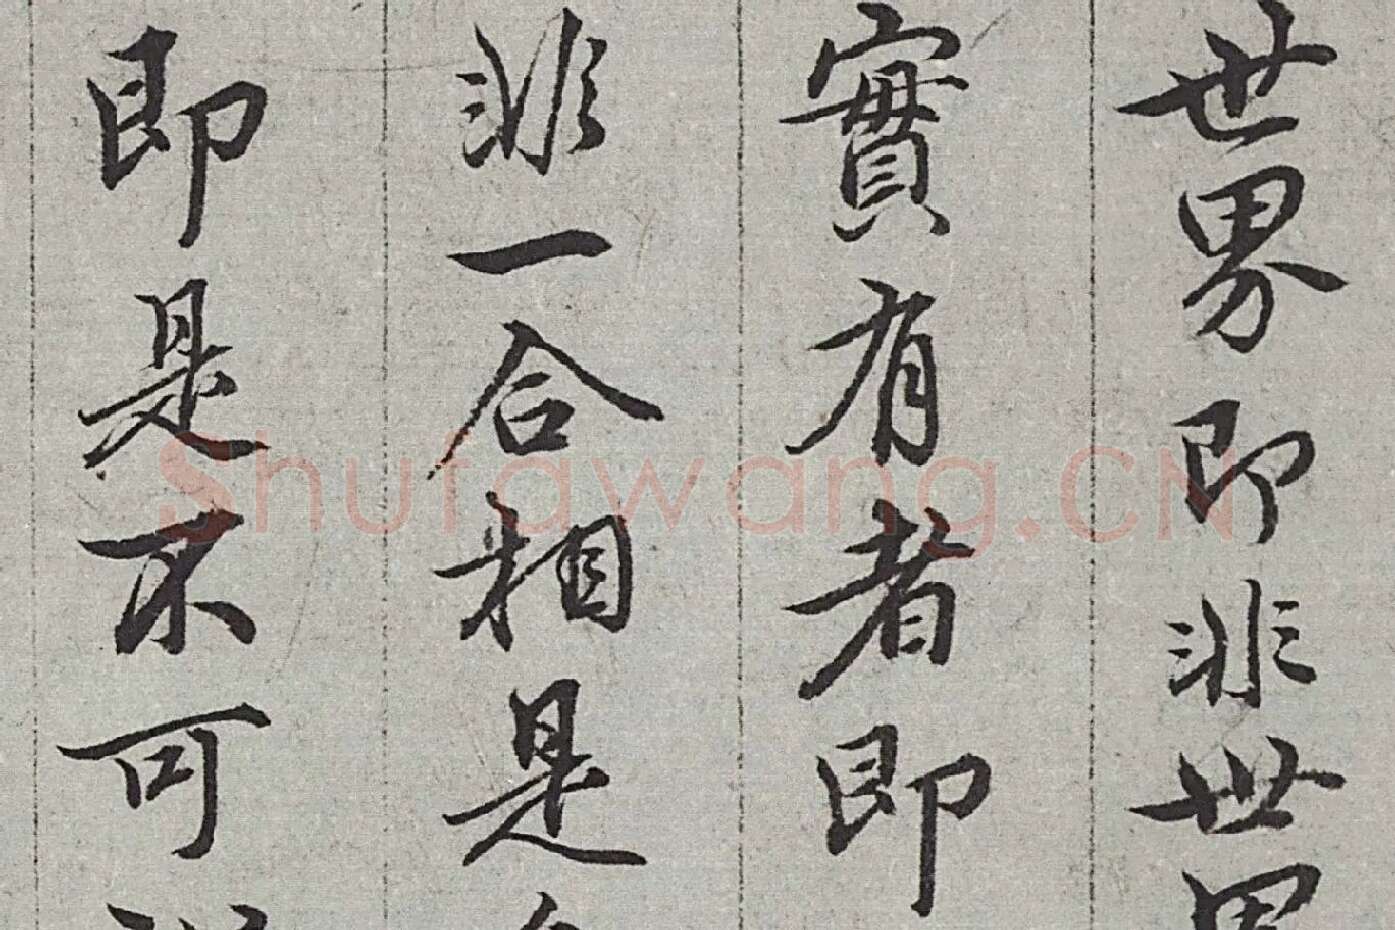 世界即非世界
實有者即
非一合相是
即是不可
Shufawang.CN